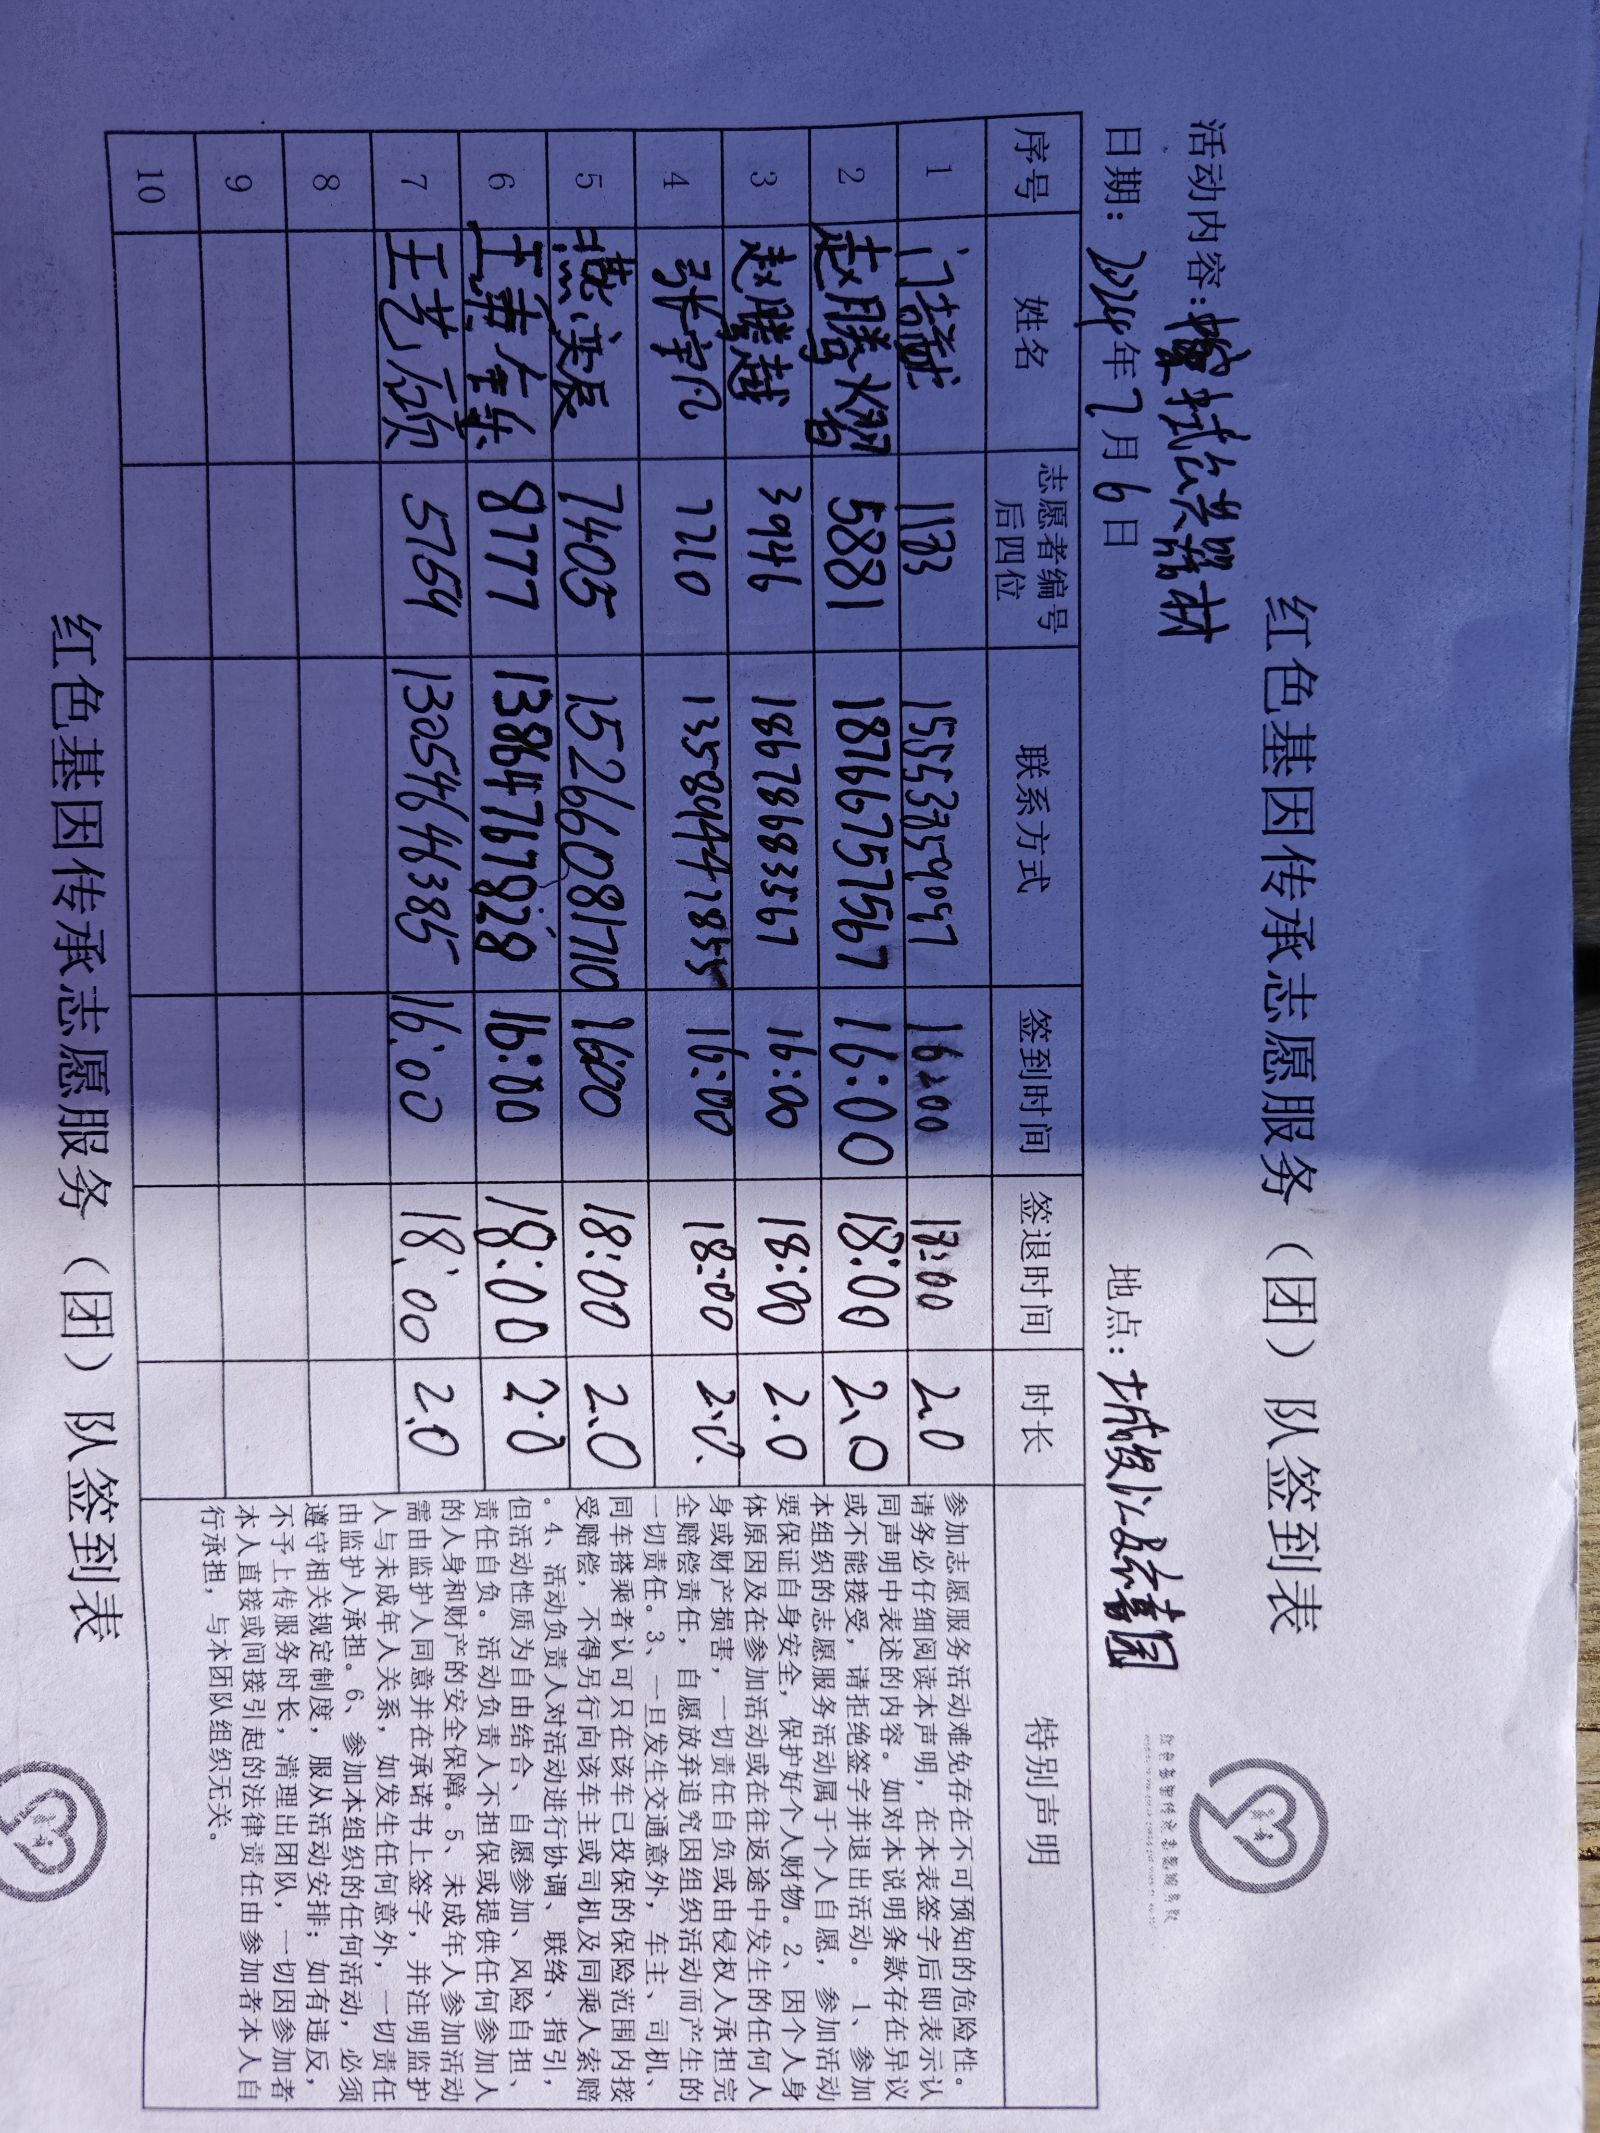 红色基因传承志愿服务（团）队签到表
活动内容：擦拭公共器材
日期：2024年7月6日 地点：
序号 姓名 志愿者编号后四位 联系方式 签到时间 签退时间 时长 特别声明
1 1133 15553859097 16:00 18:00 2.0
2 赵腾 5881 18766757567 16:00 18:00 2.0
3 赵腾越 3946 18678683567 16:00 18:00 2.0
4 张宇凡 7710 13589447855 16:00 18:00 2.0
5 燕 7405 15266081710 16:00 18:00 2.0
6 王 8777 13864767928 16:00 18:00 2.0
7 王艺硕 5754 13054646385 16:00 18:00 2.0
8
9
10
参加志愿服务活动难免存在不可预知的危险性。
请务必仔细阅读本声明，在本表签字后即表示认
同声明中表述的内容。如对本说明条款存在异议
或不能接受，请拒绝签字并退出活动。 1、参加
本组织的志愿服务活动属于个人自愿，参加活动
要保证自身安全，保护好个人财物。2、因个人身
体原因及在参加活动或在往返途中发生的任何人
身或财产损害，一切责任自负或由侵权人承担完
全赔偿责任，自愿放弃追究因组织活动而产生的
一切责任。3、一旦发生交通意外，车主、司机、
同车搭乘者认可只在该车已投保的保险范围内接
受赔偿，不得另行向该车主或司机及同乘人索赔
。4、活动负责人对活动进行协调、联络、指引，
但活动性质为自由结合、自愿参加、风险自担、
责任自负。活动负责人不担保或提供任何参加人
的人身和财产的安全保障。5、未成年人参加活动
需由监护人同意并在承诺书上签字，并注明监护
人与未成年人关系，如发生任何意外，一切责任
由监护人承担。6、参加本组织的任何活动，必须
遵守相关规定制度，服从活动安排；如有违反，
不予上传服务时长，清理出团队，一切因参加者
本人直接或间接引起的法律责任由参加者本人自
行承担，与本团队组织无关。
红色基因传承志愿服务（团）队签到表